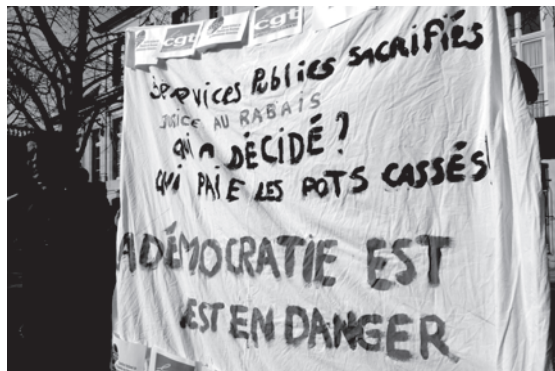 cgt cgt
SERVICES PUBLICS SACRIFIÉS
JUSTICE AU RABAIS
QUI A DÉCIDÉ?
QUI PAIE LES POTS CASSÉS
A DÉMOCRATIE EST
EST EN DANGER